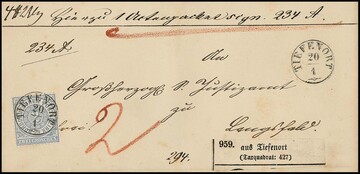 Hierzu 1 Actenpacket sign. 234 A.
234. A.
TIEFENORT
20
1
Großherzogl. S. Justizamt
zu
TIEFENORT
20
1
frei
2
Lengsfeld.
294.
959. aus Tiefenort
(Taxquadrat: 427)